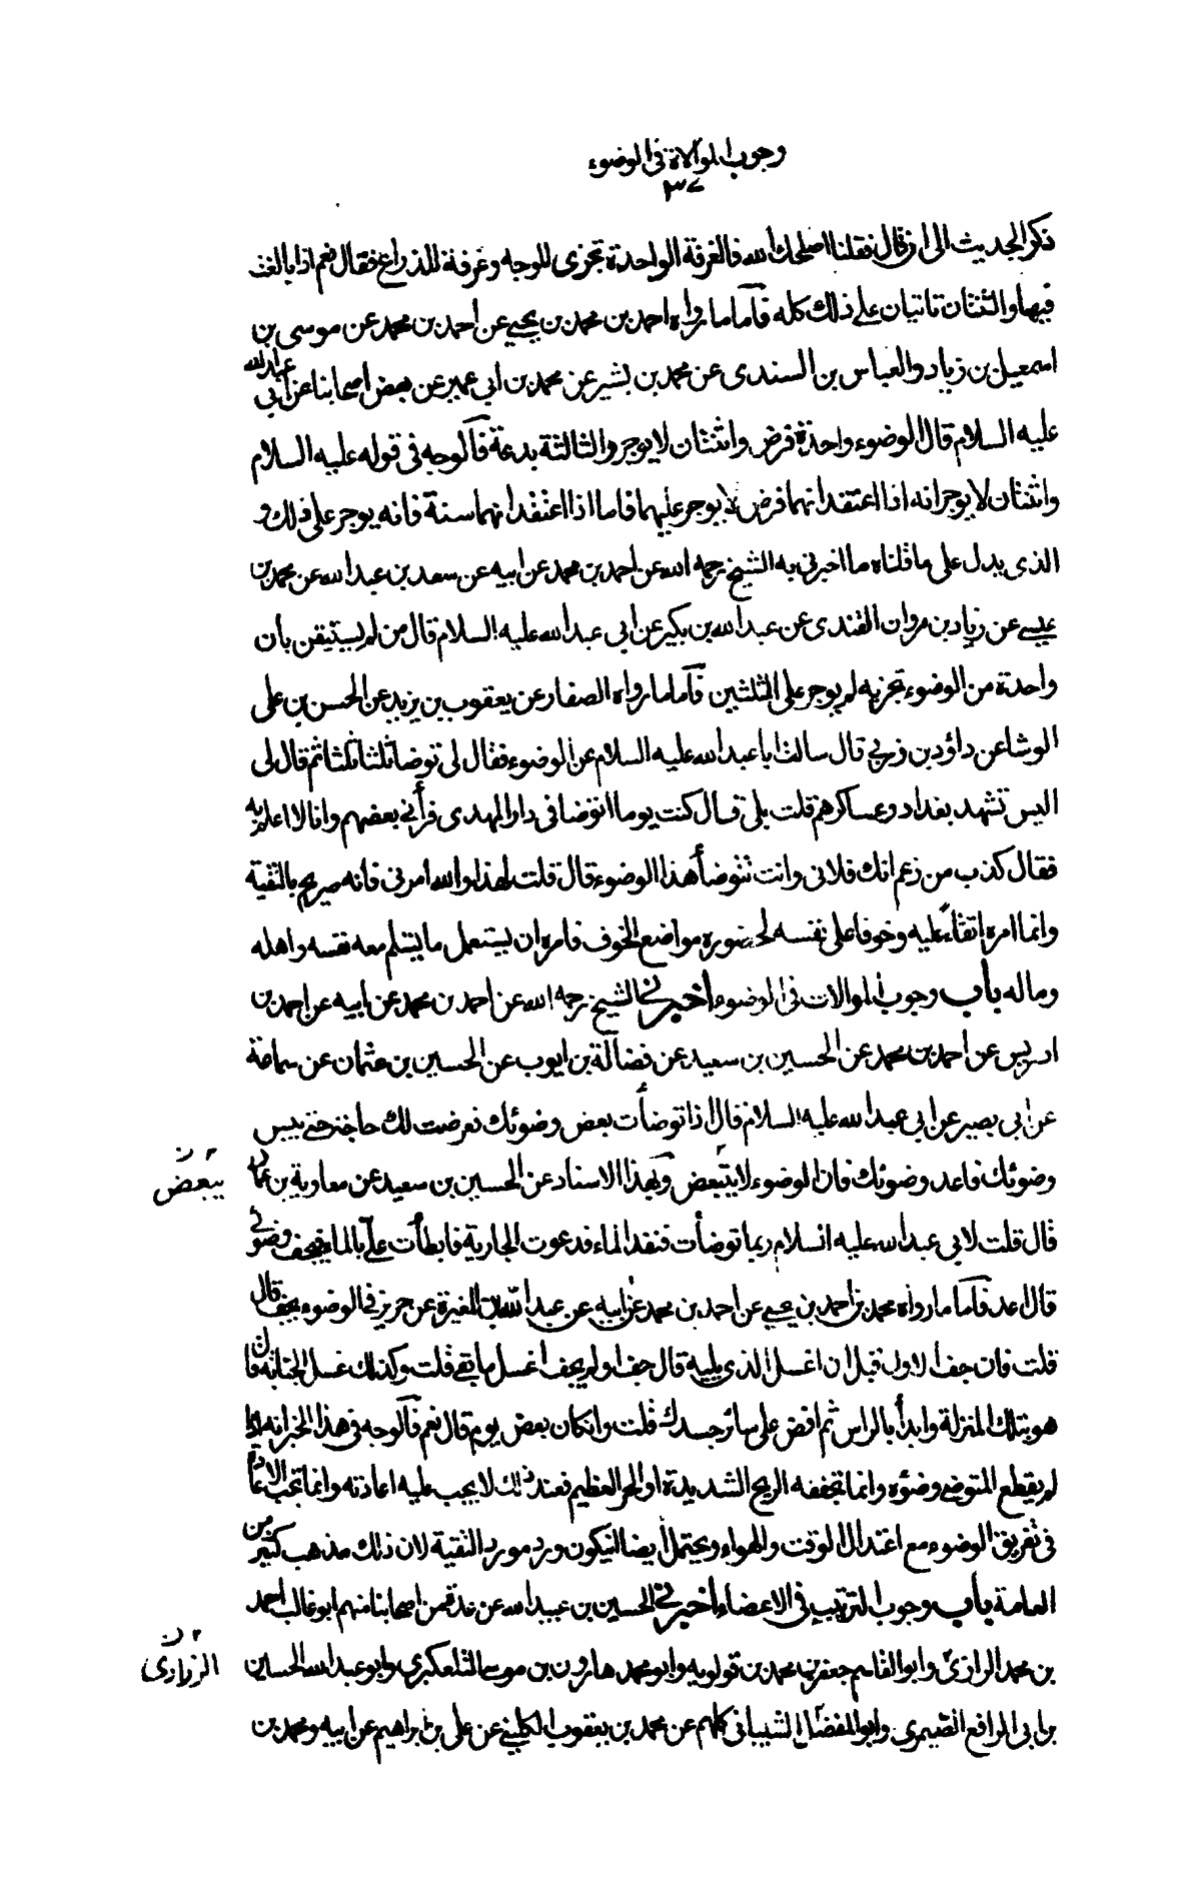 وجوب الموالاة في الوضوء
٣٧
ذكر الحديث الى ان قال فقلنا اصلحك الله فالغرفة الواحدة تجزى للوجه وغرفة للذراع فقال نعم اذا بالغت
فيها والثنتان تاتيان على ذلك كله فآما ما رواه احمد بن محمد بن يحيى عن احمد بن محمد عن موسى بن
اسمعيل بن زياد والعباس بن السندى عن محمد بن بشير عن محمد بن ابي عمير عن بعض اصحابنا عن ابي عبد الله
عليه السلام قال الوضوء واحدة فرض واثنتان لا يوجر والثالثة بدعة فآلوجه فى قوله عليه السلام
واثنتان لا يوجر انه اذا اعتقد انهما فرض لا يوجر عليهما فاما اذا اعتقد انهما سنة فانه يوجر على ذلك و
الذى يدل على ما قلناه ما اخبرنى به الشيخ رحمه الله عن احمد بن محمد عن ابيه عن سعد بن عبد الله عن محمد بن
عيسى عن زياد بن مروان القندى عن عبد الله بن بكير عن ابي عبد الله عليه السلام قال من لم يستيقن بان
واحدة من الوضوء تجزيه لم يوجر على الثنتين فآما ما رواه الصفار عن يعقوب بن يزيد عن الحسن بن على
الوشا عن داؤد بن زربي قال سالت ابا عبد الله عليه السلام عن الوضوء فقال لى توضا ثلثا ثلثا ثم قال لى
اليس تشهد بغداد وعساكرهم قلت بلى قال كنت يوما اتوضا فى دار المهدى فرأنى بعضهم وانا لا اعلم به
فقال كذب من زعم انك فلانى وانت تتوضأ هذا الوضوء قال قلت لهذا والله امرنى فانه صريح بالتقية
وانما امره اتقاءً عليه وخوفا على نفسه لحضوره مواضع الخوف فامره ان يستعمل ما يسلم معه نفسه واهله
وماله باب وجوب الموالات فى الوضوء اخبرنى الشيخ رحمه الله عن احمد بن محمد عن ابيه عن احمد بن
ادريس عن احمد بن محمد عن الحسين بن سعيد عن فضالة بن ايوب عن الحسين بن عثمان عن سماعة
عن ابي بصير عن ابي عبد الله عليه السلام قال اذا توضأت بعض وضوئك فعرضت لك حاجة حتى يبس
وضوئك فاعد وضوئك فان الوضوء لا يتبعض وبهذا الاسناد عن الحسين بن سعيد عن معاوية بن عمار
يبعض
قال قلت لابي عبد الله عليه السلام ربما توضأت فنفد الماء فدعوت الجارية فابطأت علىّ بالماء فيجف وضوئى
قال اعد فآما ما رواه محمد بن احمد بن يحيى عن احمد بن محمد عن ابيه عن عبد الله بن المغيرة عن حريز فى الوضوء يجف قال
قلت فان جف الاول قبل ان اغسل الذى يليه قال جف او لم يجف اغسل ما بقى قلت وكذلك غسل الجنابة قال
هو بتلك المنزلة وابدأ بالراس ثم افض على سائر جسدك قلت وان كان بعض يوم قال نعم فآلوجه فى هذا الخبر انه اذا
لم يقطع المتوضى وضوئه وانما تجففه الريح الشديدة او الحر العظيم فعند ذلك لا يجب عليه اعادته وانما تجب الاعادة
فى تفريق الوضوء مع اعتدال الوقت والهواء ويحتمل ايضا ان يكون ورد مورد التقية لان ذلك مذهب كثير من
العامة باب وجوب الترتيب فى الاعضاء اخبرنى الحسين بن عبيد الله عن عدة من اصحابنا منهم ابو غالب احمد
بن محمد الرازى وابو القاسم جعفر بن محمد بن قولويه وابو محمد هارون بن موسى التلعكبرى وابو عبد الله الحسين
الزرارى
بن ابى الرافع الصيمرى وابو المفضل الشيبانى كلهم عن محمد بن يعقوب الكلينى عن على بن ابراهيم عن ابيه ومحمد بن